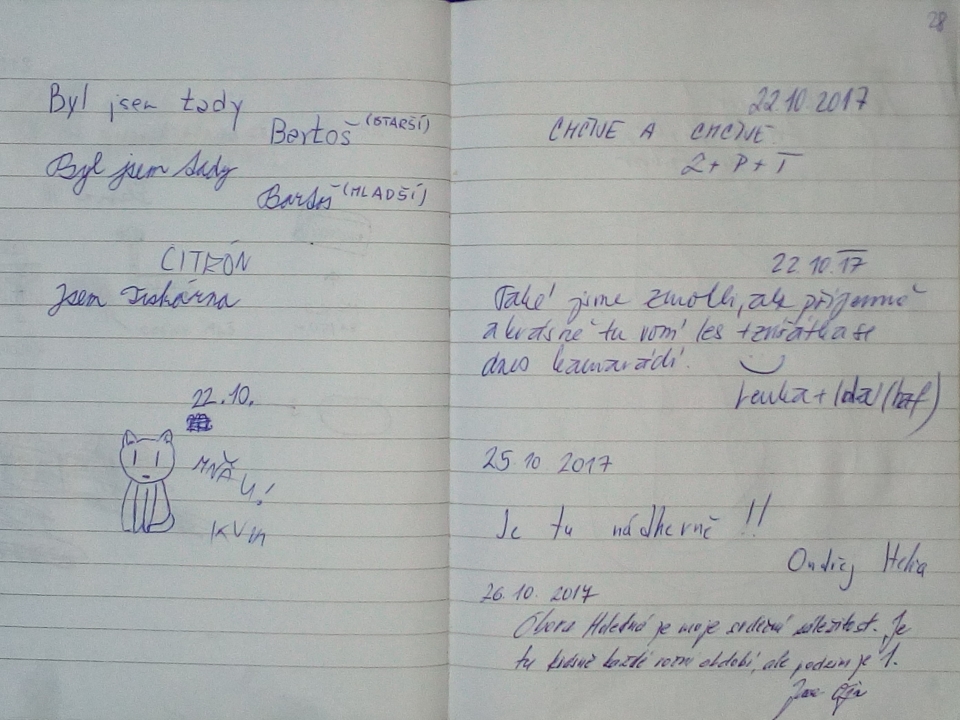 Byl jsem tady
Bartoš (STARŠÍ)
Byl jsem tady
Bartoš (MLADŠÍ)
CITRÓN
Jsem Tiskárna
22.10.
MŇĀ
U!
28
22.10.2017
CHCIJE A CHCIJE
2 + P + T
22.10.17
Také jsme zmokli, ale příjemně
a krásně tu voní les + zvířátka se
dnes kamarádí.
Lenka + (haf)
25 10 2017
Je tu nádherně !!
Ondřej
26. 10. 2017
Obora Holedná je moje srdeční záležitost. Je
tu krásně každé roční období, ale podzim je 1.